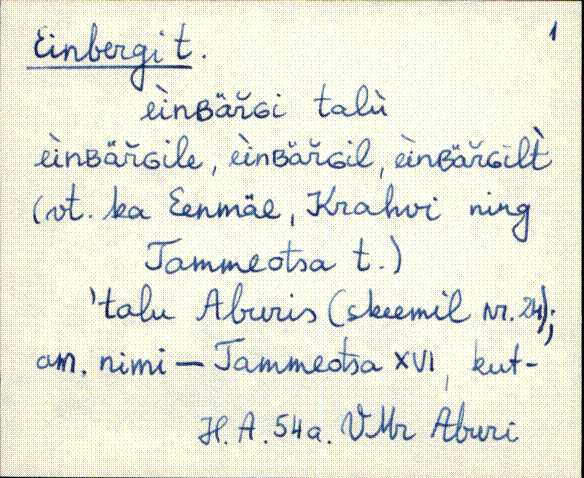 1
Einbergi t.
èinʙäřɢi talù
èinʙäřɢile, èinʙäřɢil, èinʙäřɢilt̀
(vt. ka Eenmäe, Krahvi ning
Tammeotsa t.)
'talu Aburis (skeemil nr. 24);
am. nimi — Tammeotsa XVI, kut-
H. A. 54a. VMr Aburi